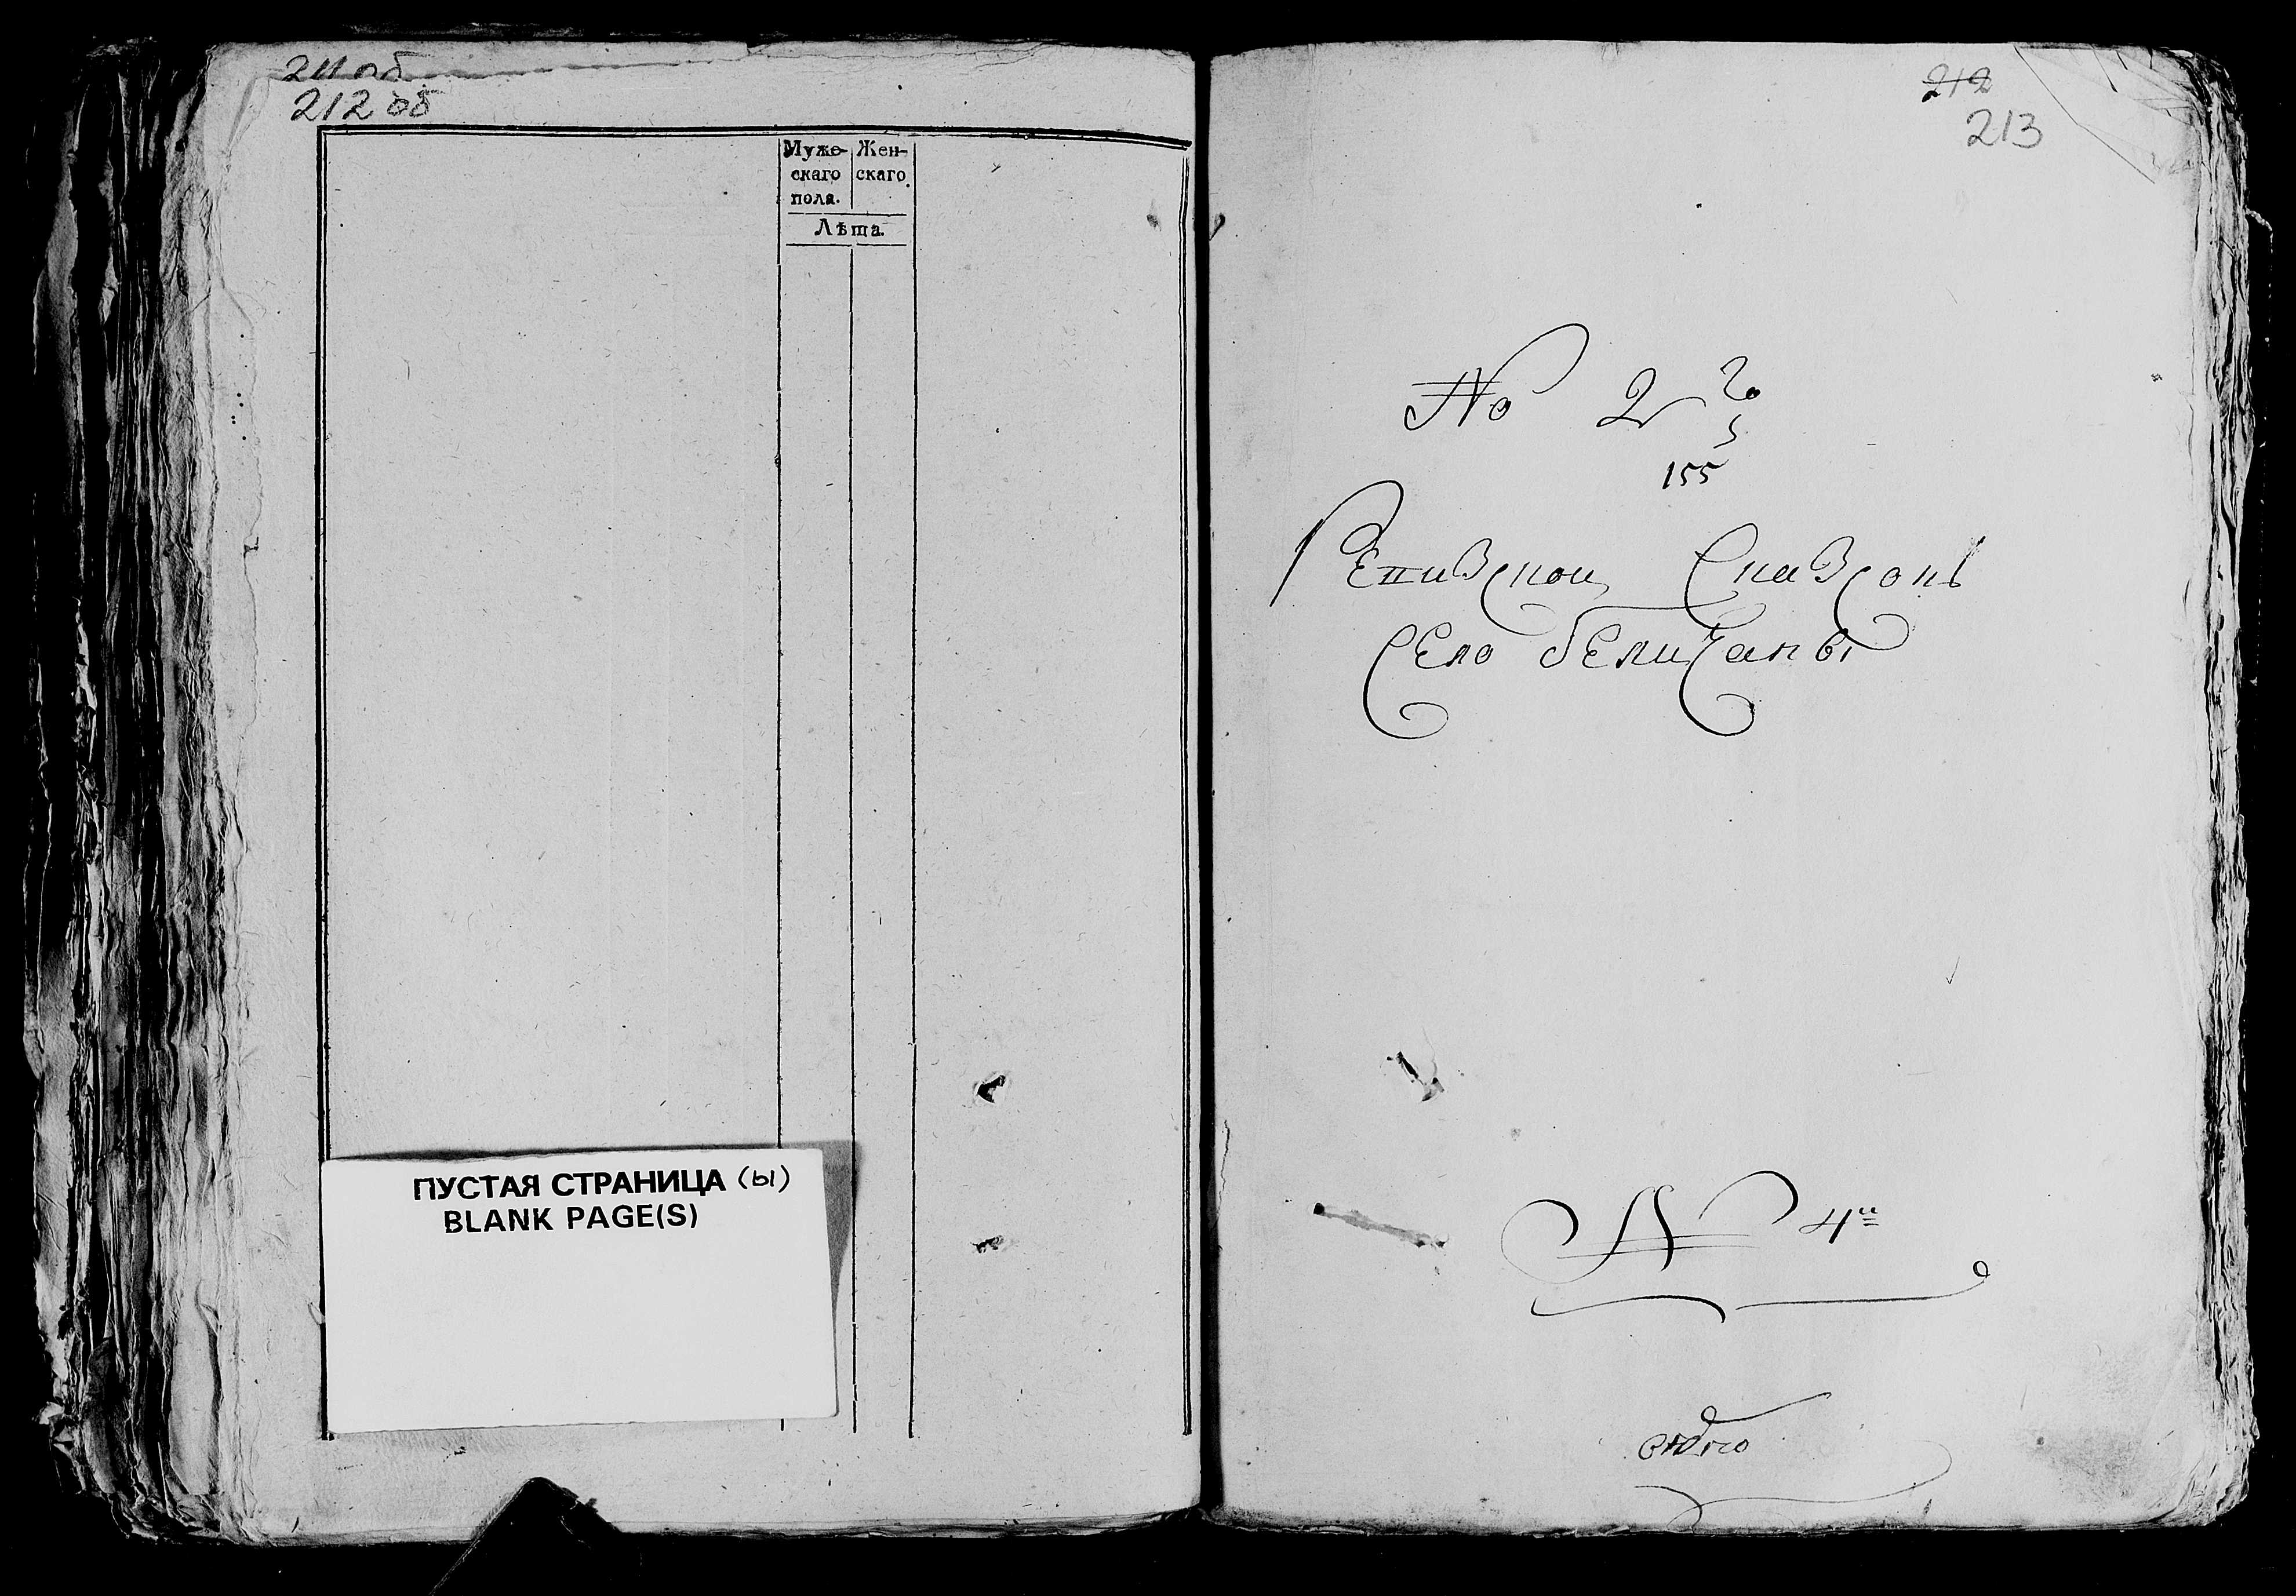 211 об
212 об
Муже- Жен-
скаго скаго
пола.
Лѣта.
ПУСТАЯ СТРАНИЦА (ы)
BLANK PAGE(S)
212
213
No 2 го
155
Ревизской Сказсокъ
Село беличаны
№ 4й